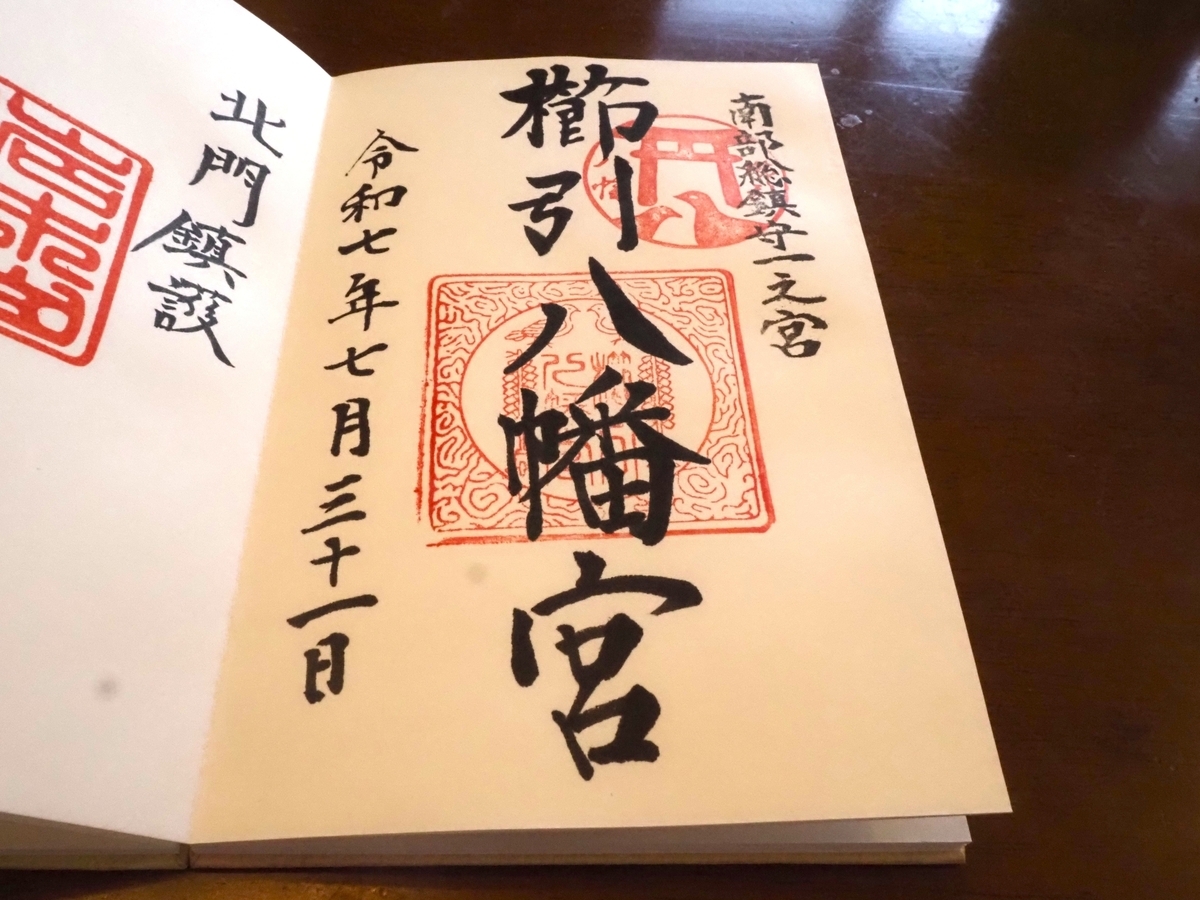 南部総鎮守一之宮
櫛引八幡宮
令和七年七月三十一日
北門鎮護